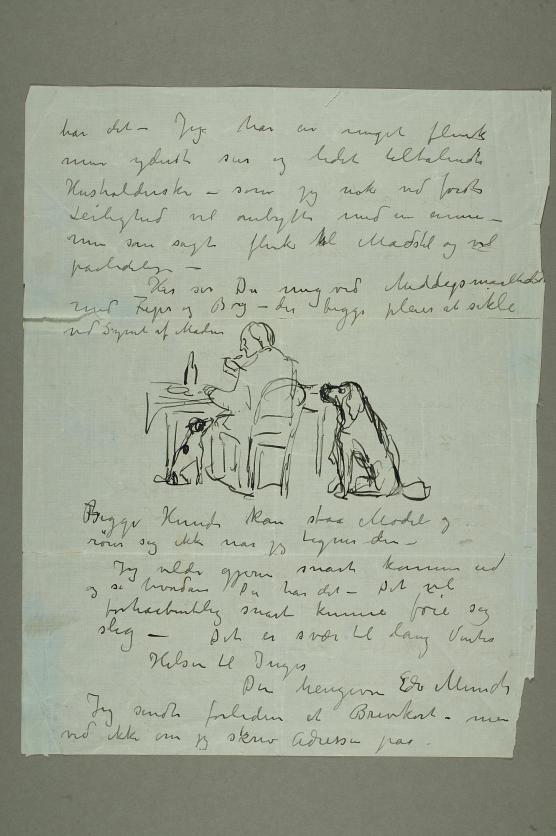 har det – Jeg har en meget flink
men yderst sur og lidet tiltalende
Husholderske – som jeg nok ved første
Leilighed vil ombytte med en anden –
men som sagt flink til Madstel og vel
paalidelig –
Her ser Du mig ved Middagsmaaltidet
med Fips og Boy – der begge pleier at sikle
ved Synet af Maden
Begge Hunde kan staa Model og
rører sig ikke naar jeg tegner dem –
Jeg vilde gjerne snart komme ud
og se hvordan Du har det – Det vil
forhaabentlig snart kunne føie sig
slig – Det er svær til lang Vinter
Hilsen til Inger
Din hengivne Edv Munch
Jeg sendte forleden et Brevkort – men
ved ikke om jeg skrev Adressen paa.